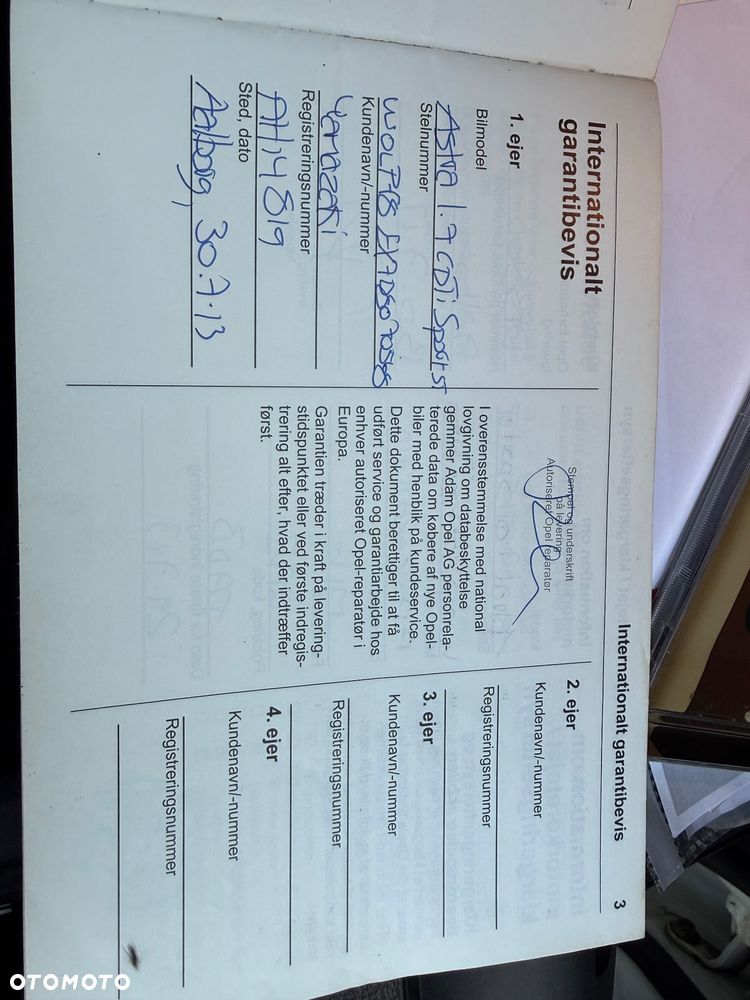 Internationalt garantibevis 3
Internationalt
garantibevis
1. ejer
Bilmodel
Astra 1.7 CDTi Sport ST
Stelnummer
Kundenavn/-nummer
Yamazaki
Registreringsnummer
AH14819
Sted, dato
Aalborg, 30.7.13
Stempel og underskrift
på levering
Autoriseret Opel reparatør
I overensstemmelse med national
lovgivning om databeskyttelse
gemmer Adam Opel AG personrela-
terede data om købere af nye Opel-
biler med henblik på kundeservice.
Dette dokument berettiger til at få
udført service og garantiarbejde hos
enhver autoriseret Opel-reparatør i
Europa.
Garantien træder i kraft på levering-
stidspunktet eller ved første indregis-
trering alt efter, hvad der indtræffer
først.
2. ejer
Kundenavn/-nummer
Registreringsnummer
3. ejer
Kundenavn/-nummer
Registreringsnummer
4. ejer
Kundenavn/-nummer
Registreringsnummer
OTOMOTO